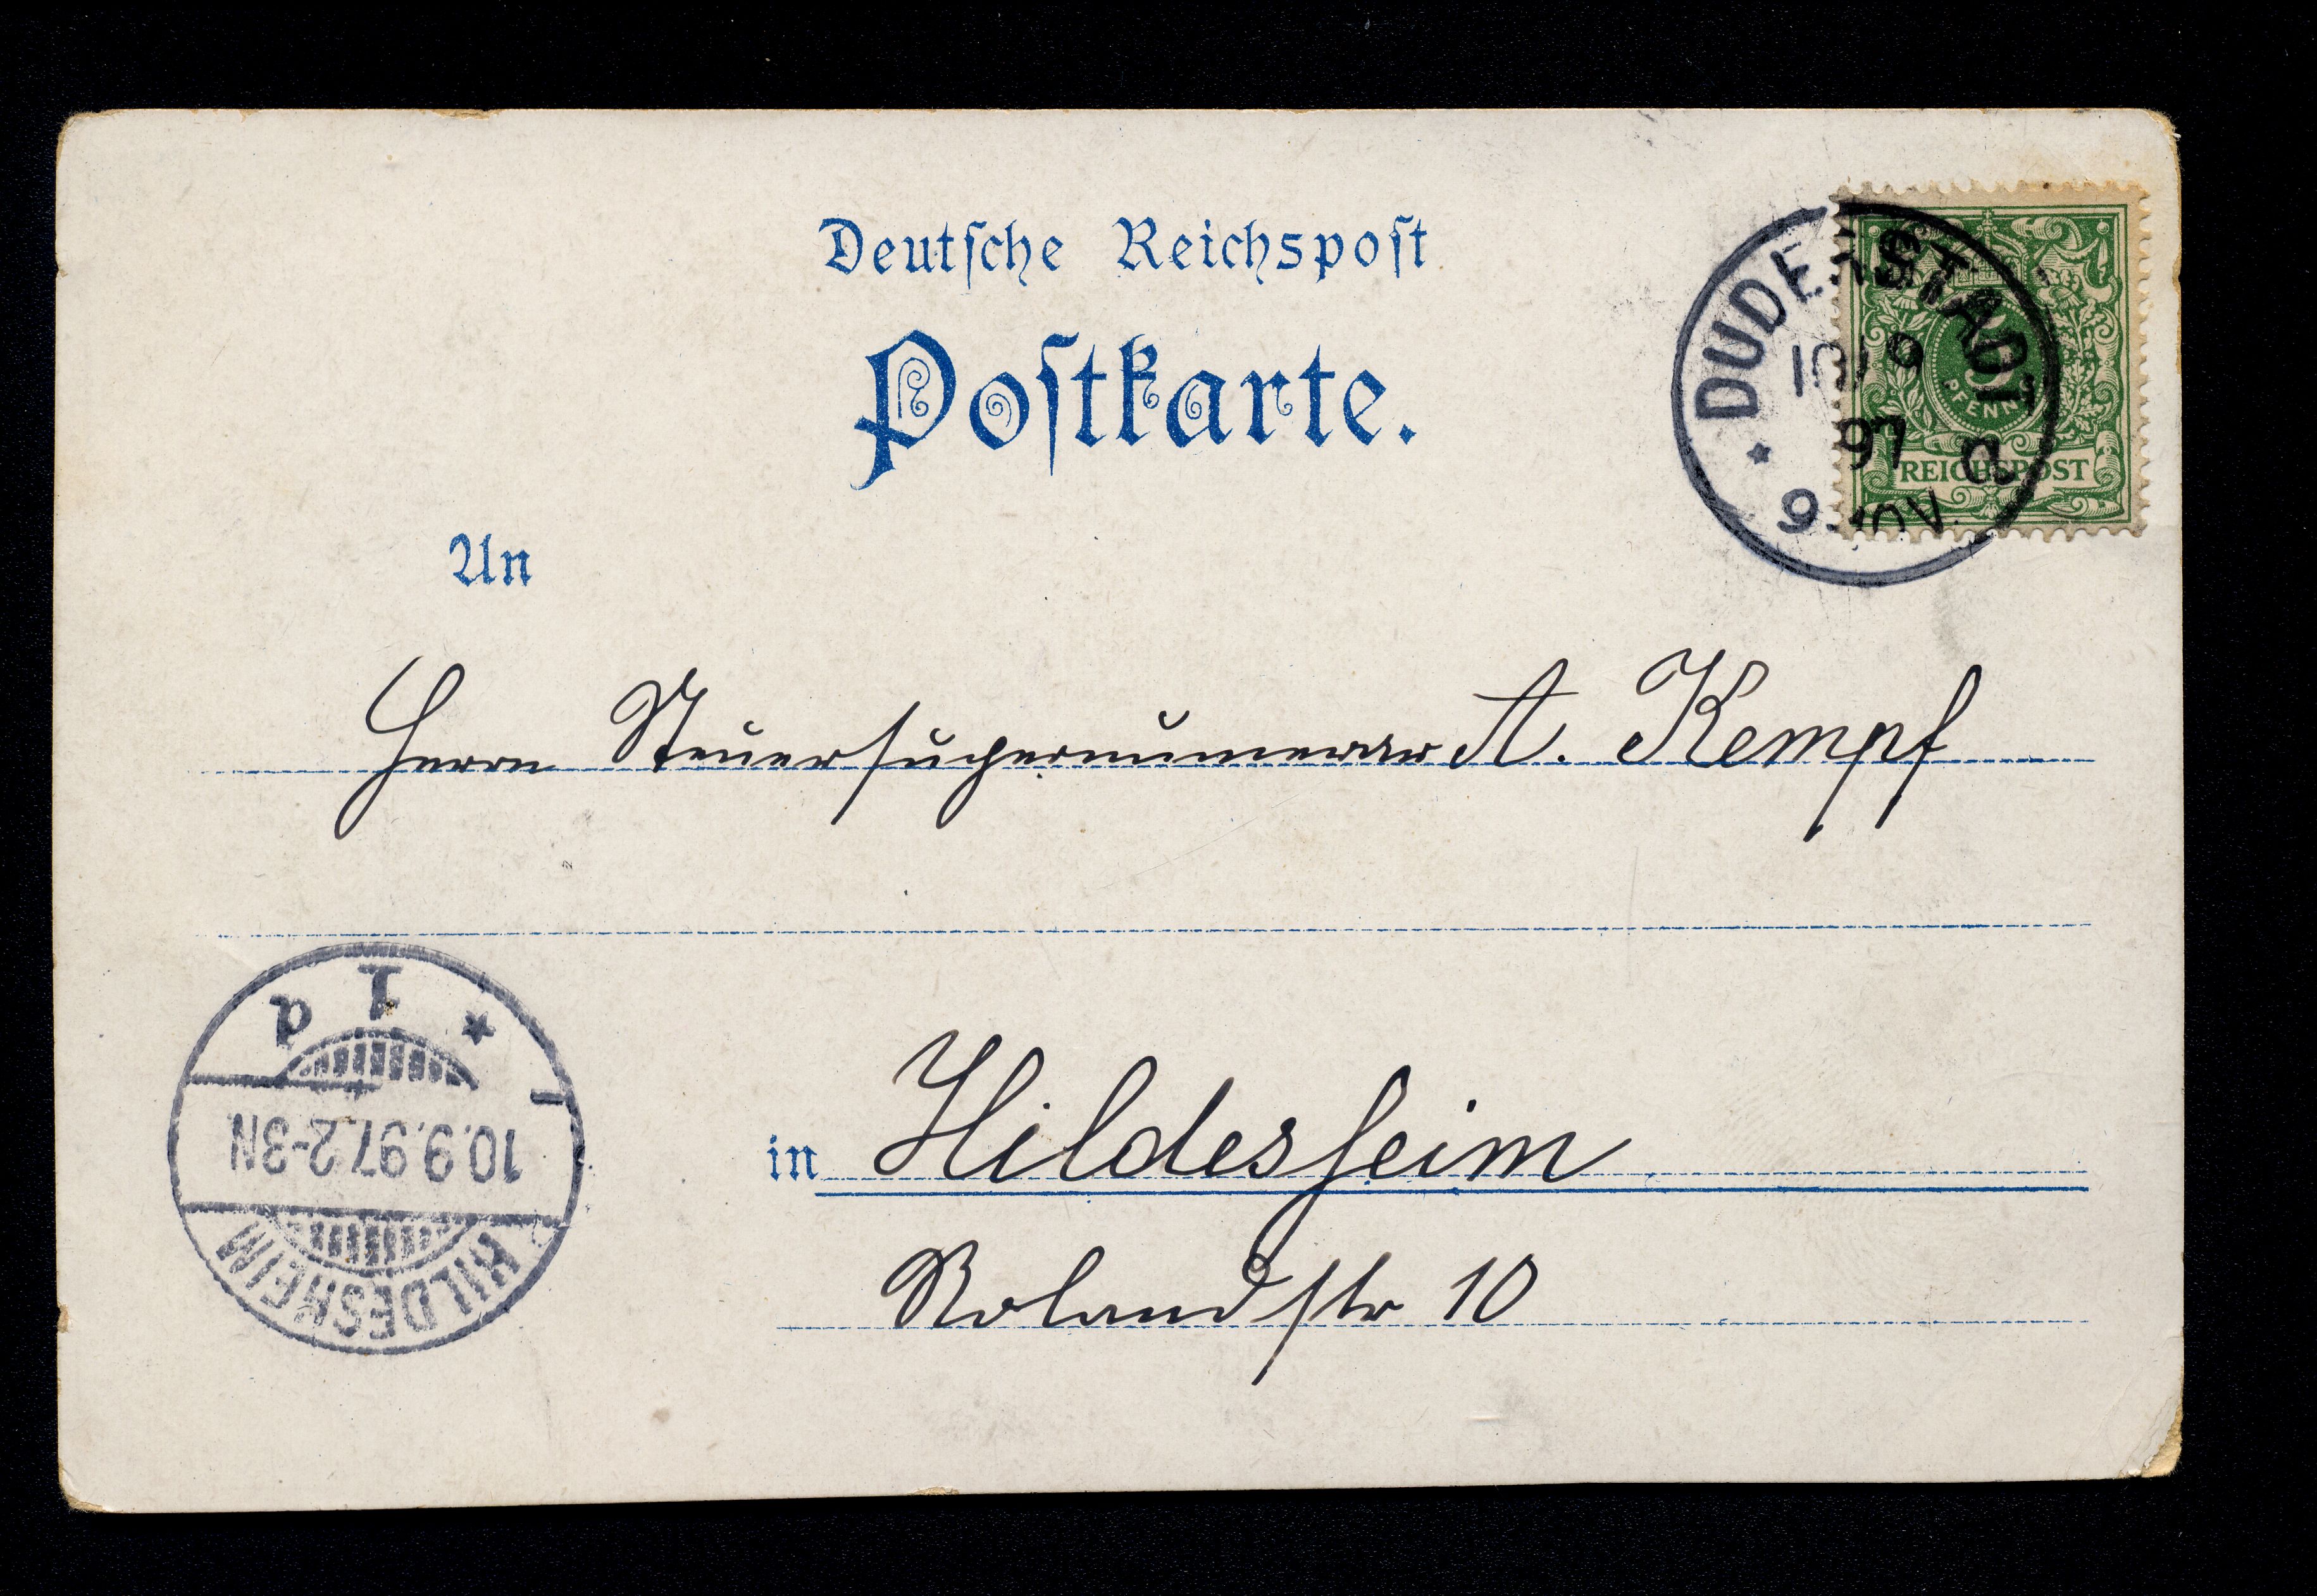 Deutsche Reichspost
Postkarte.
DUDERSTADT
10/9
97
* a
9-10V.
5
PFENNIG
REICHSPOST
An
Herrn Steuersupernumerar A. Kempf
in Hildesheim
Rolandstr 10
HILDESHEIM
10.9.97.2-3N
* 1 d